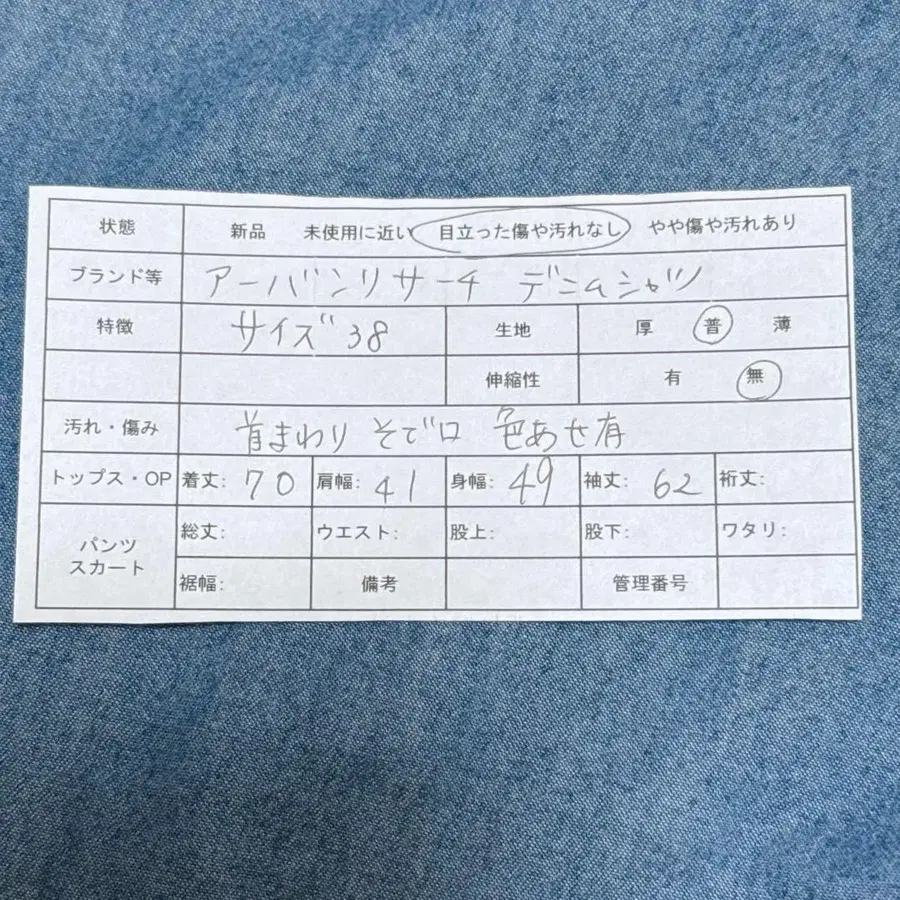 状態 新品 未使用に近い 目立った傷や汚れなし やや傷や汚れあり
ブランド等 アーバンリサーチ デニムシャツ
特徴 サイズ38 生地 厚 普 薄
伸縮性 有 無
汚れ・傷み 首まわり そで口 色あせ有
トップス・OP 着丈: 70 肩幅: 41 身幅: 49 袖丈: 62 裄丈:
パンツ スカート 総丈: ウエスト: 股上: 股下: ワタリ:
裾幅: 備考 管理番号